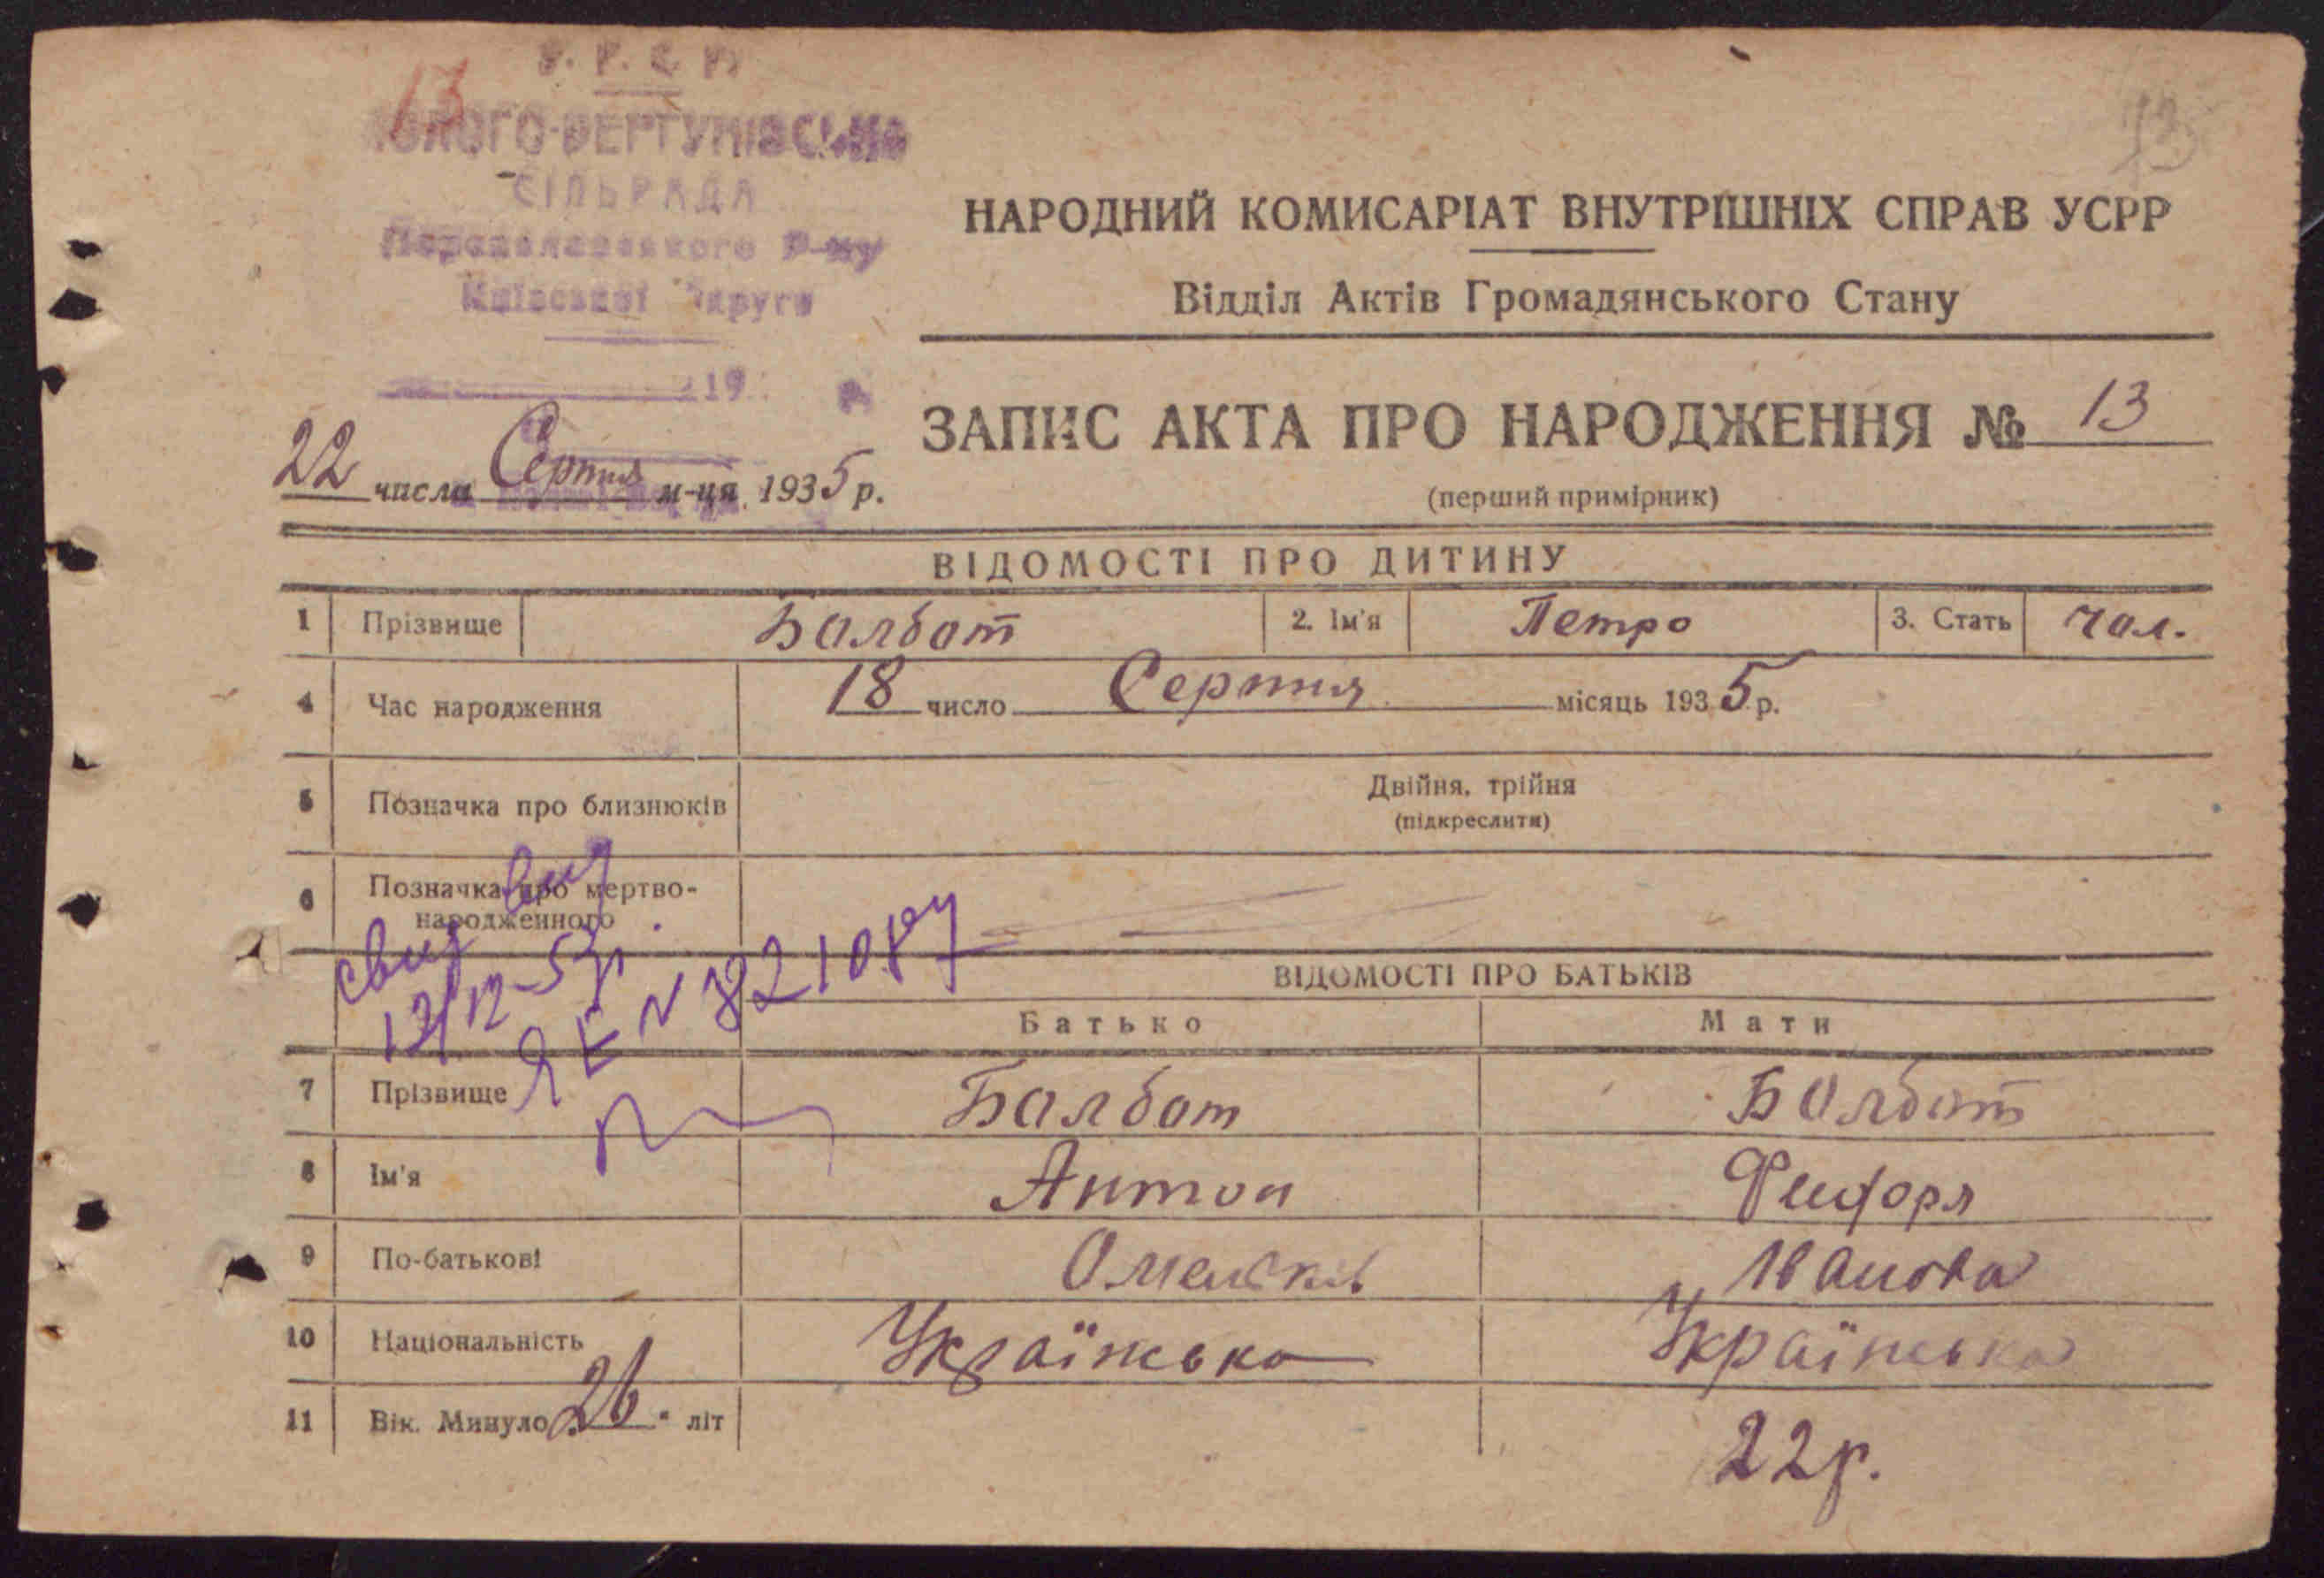 13
У. Р. С. Р.
СІЛЬРАДА
Переяславського Р-ну
Київської Округи
19
13
НАРОДНИЙ КОМИСАРІАТ ВНУТРІШНІХ СПРАВ УСРР
Відділ Актів Громадянського Стану
ЗАПИС АКТА ПРО НАРОДЖЕННЯ № 13
(перший примірник)
22 числа Серпня м-ця 1935 р.
ВІДОМОСТІ ПРО ДИТИНУ
1 Прізвище Балбат 2. Ім'я Петро 3. Стать чол.
4 Час народження 18 число Серпня місяць 1935 р.
5 Позначка про близнюків Двійня, трійня
(підкреслити)
6 Позначка про мертво-
народженного
ВІДОМОСТІ ПРО БАТЬКІВ
Батько Мати
7 Прізвище Балбат Балбат
8 Ім'я Антон
9 По-батькові Іванова
10 Національність Українська Українська
11 Вік. Минуло 26 літ 22 р.